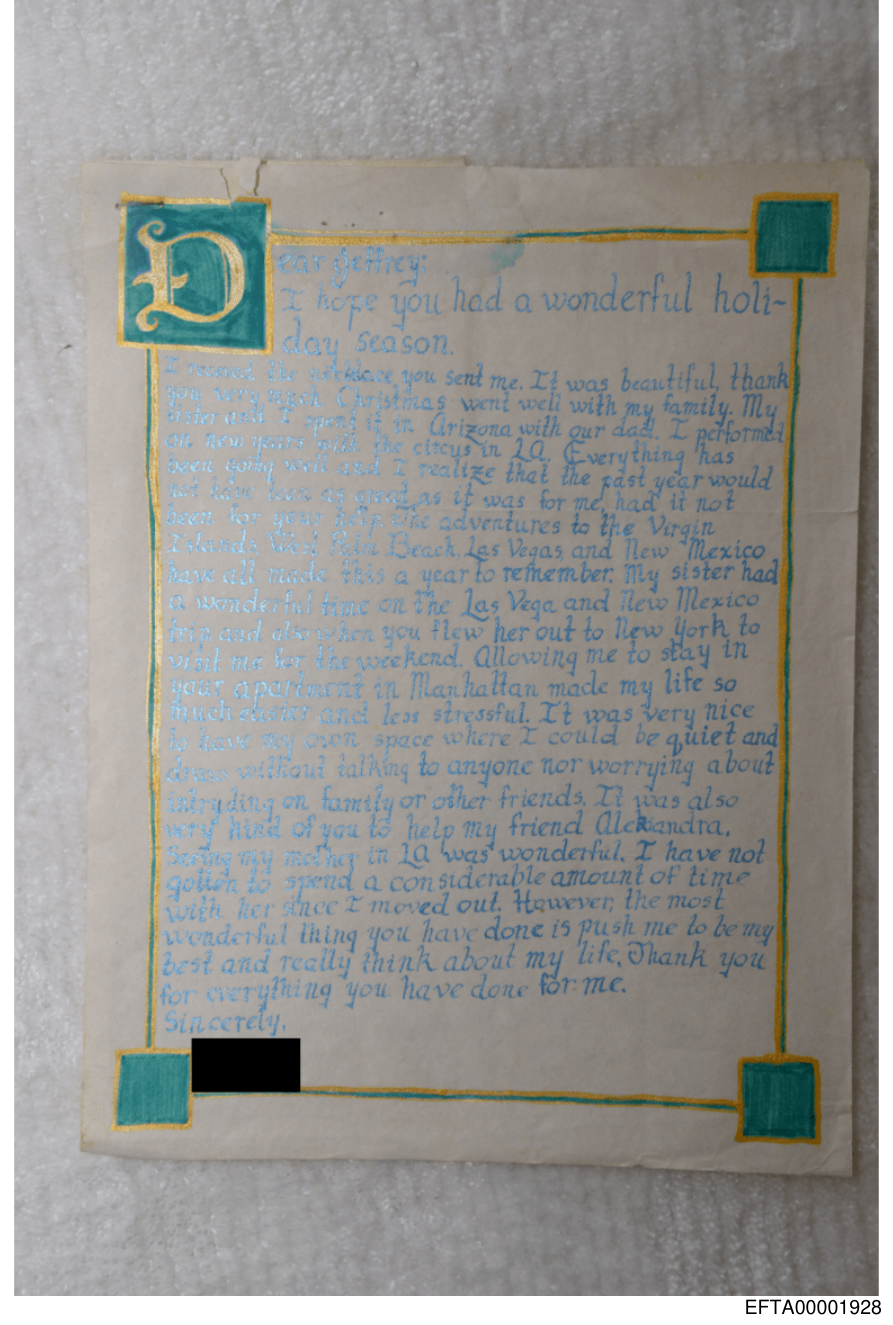 Dear Jeffrey:
I hope you had a wonderful holi-
day season.
I received the necklace you sent me. It was beautiful, thank
you very much. Christmas went well with my family. My
sister and I spent it in Arizona with our dad. I performed
on new years with the circus in LA. Everything has
been going well and I realize that the past year would
not have been as great as it was for me, had it not
been for your help. The adventures to the Virgin
Islands, West Palm Beach, Las Vegas, and New Mexico
have all made this a year to remember. My sister had
a wonderful time on the Las Vega and New Mexico
trip and also when you flew her out to New York to
visit me for the weekend. Allowing me to stay in
your apartment in Manhattan made my life so
much easier and less stressful. It was very nice
to have my own space where I could be quiet and
draw without talking to anyone nor worrying about
intryding on family or other friends. It was also
very kind of you to help my friend Alexandra.
Seeing my mother in LA was wonderful. I have not
gotten to spend a considerable amount of time
with her since I moved out. However, the most
wonderful thing you have done is push me to be my
best and really think about my life. Thank you
for everything you have done for me.
Sincerely,
EFTA00001928